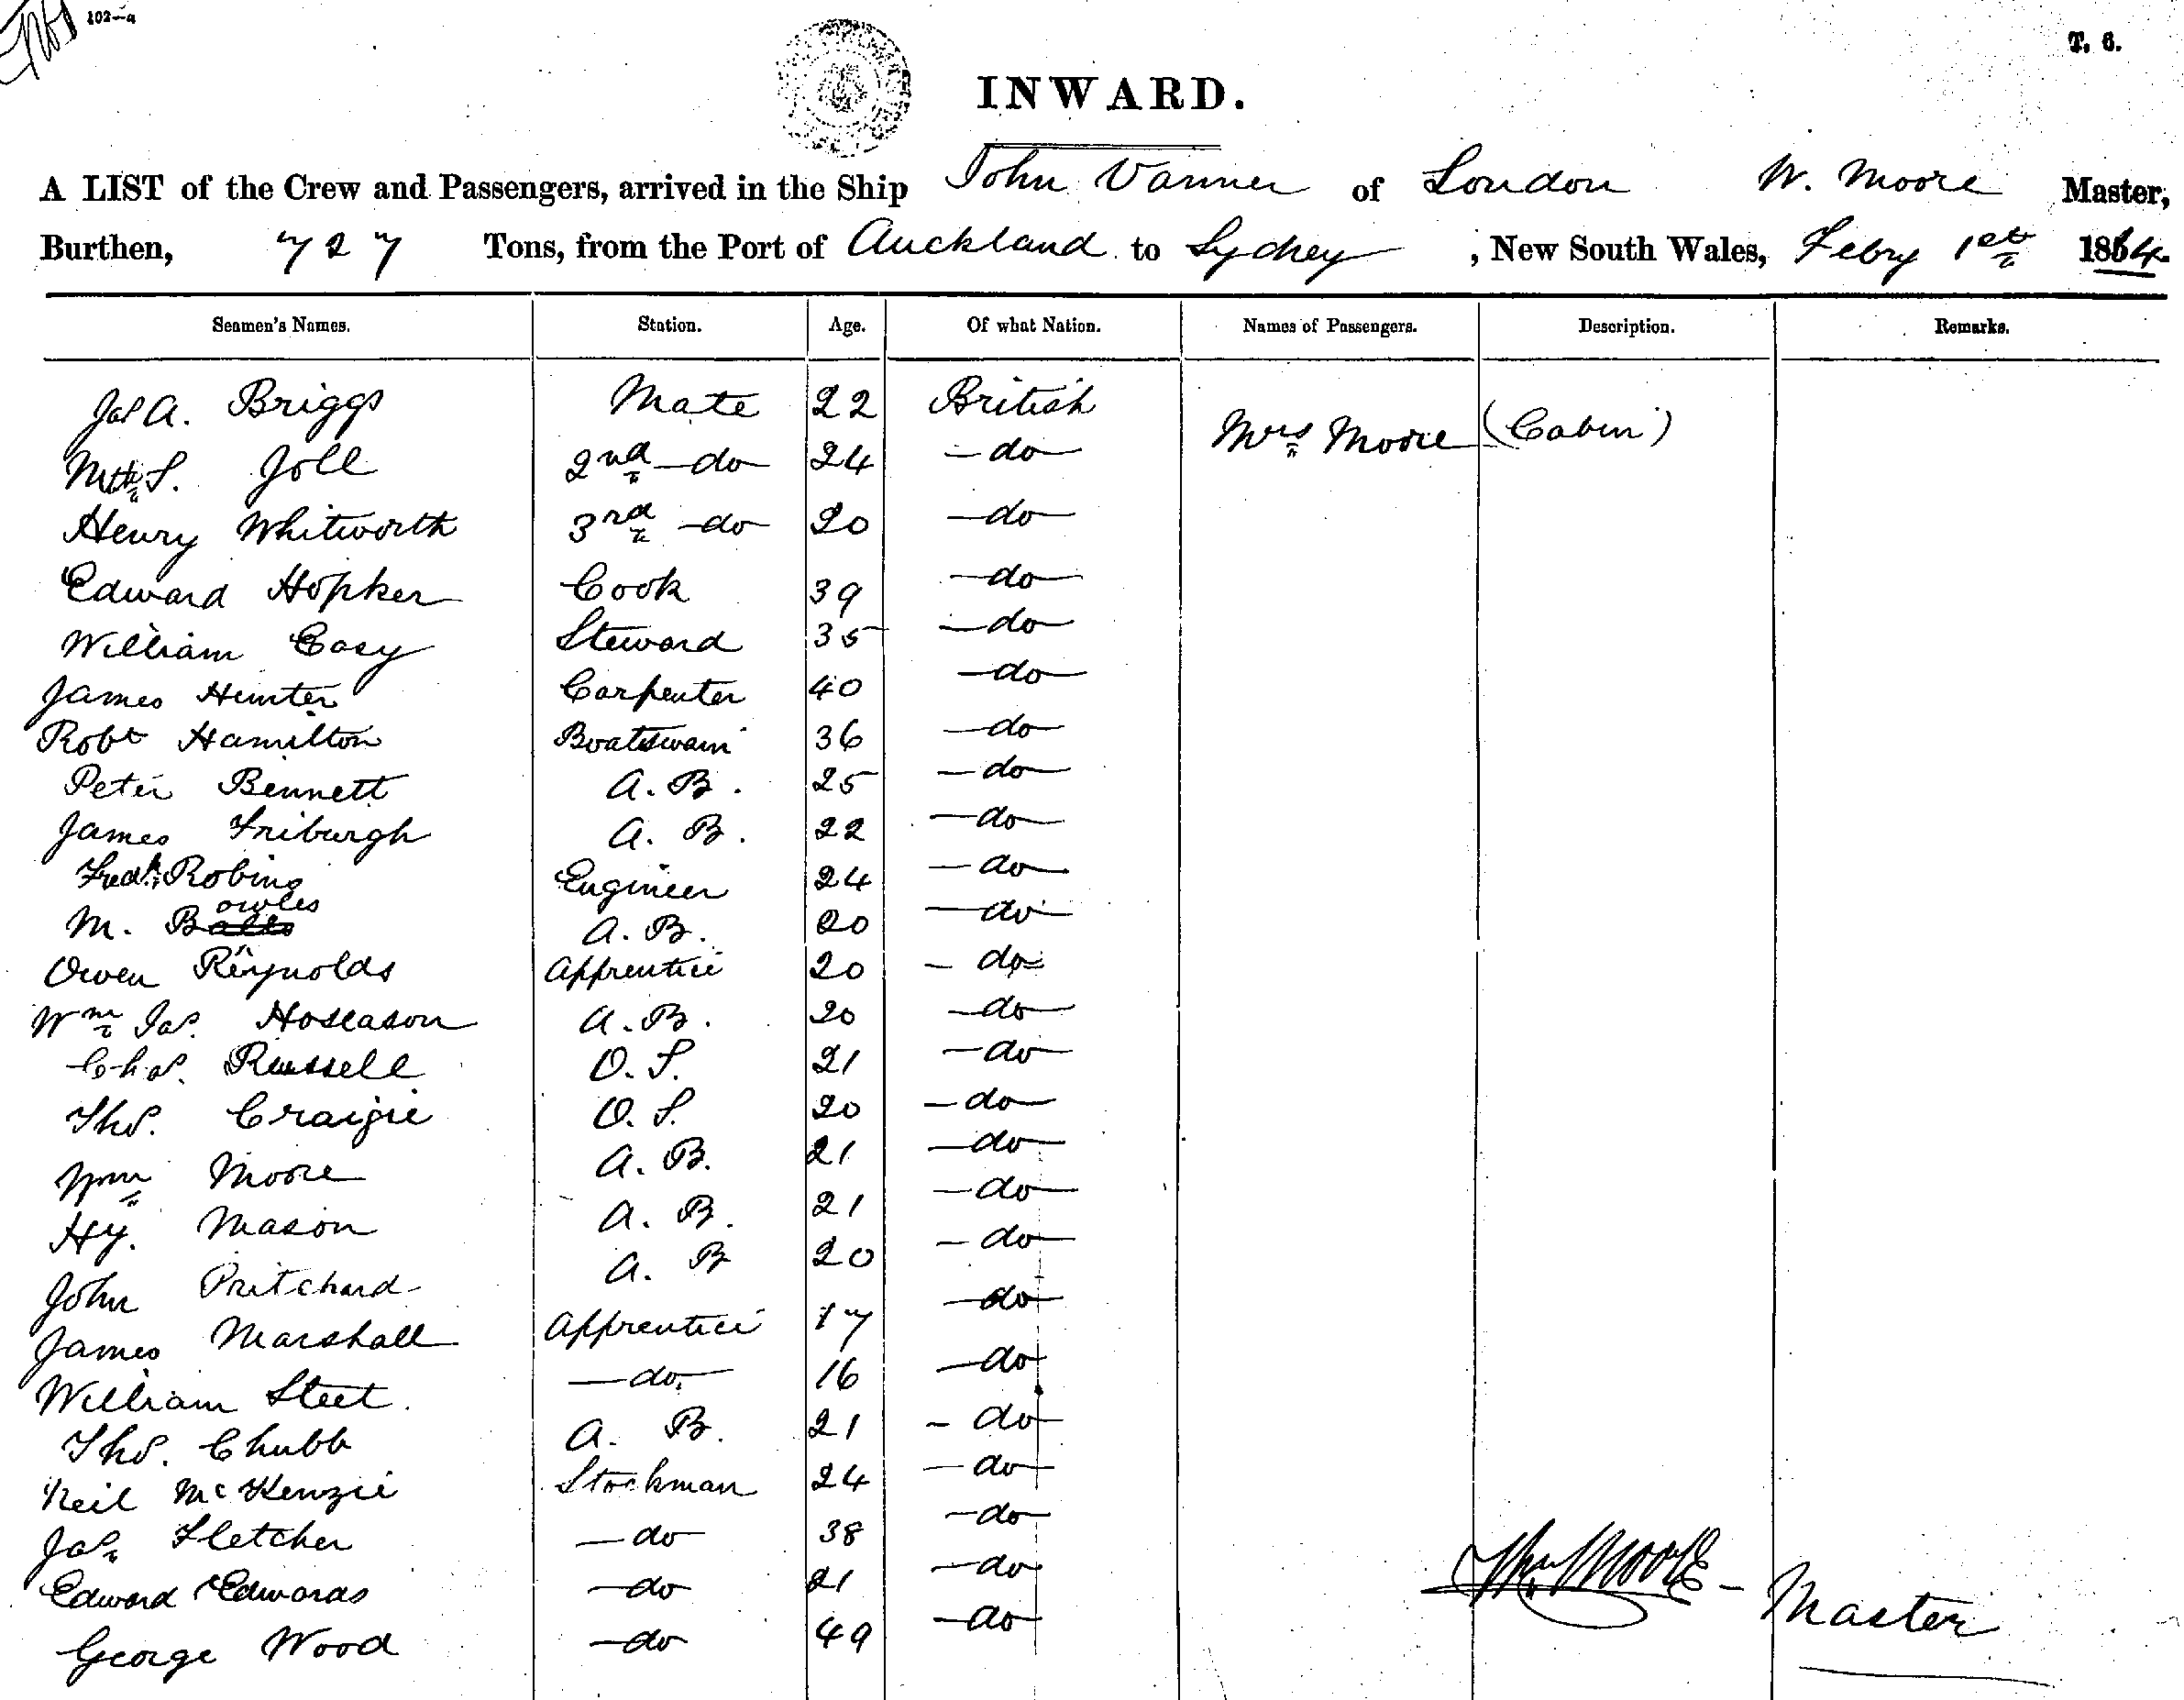 102—a
T. 6.
INWARD.
A LIST of the Crew and Passengers, arrived in the Ship John Vanner of London W. Moore Master,
Burthen, 727 Tons, from the Port of Auckland to Sydney, New South Wales, Febry 1st 1864.
Seamen's Names. Station. Age. Of what Nation. Names of Passengers. Description. Remarks.
Jas A. Briggs Mate 22 British Mrs Moore (Cabin)
S. Joll 2nd do 24 do
Henry Whitworth 3rd do 20 do
Edward Hopker Cook 39 do
William Casy Steward 35 do
James Hunter Carpenter 40 do
Robt Hamilton Boatswain 36 do
Peter Bennett A. B. 25 do
James Friburgh A. B. 22 do
Fredk Robins Engineer 24 do
M. Bowles A. B. 20 do
Owen Reynolds Apprentice 20 do
Wm Jas. Hoseason A. B. 20 do
Chas. Russell O. S. 21 do
Thos. Craigie O. S. 20 do
Wm Moore A. B. 21 do
Hy. Mason A. B. 21 do
John Pritchard A. B 20 do
James Marshall Apprentice 17 do
William Steet. do 16 do
Thos. Chubb A. B. 21 do
Neil McKenzie Stockman 24 do
Jas Fletcher do 38 do
Edward Edwards do 21 do
George Wood do 49 do
Wm Moore – Master